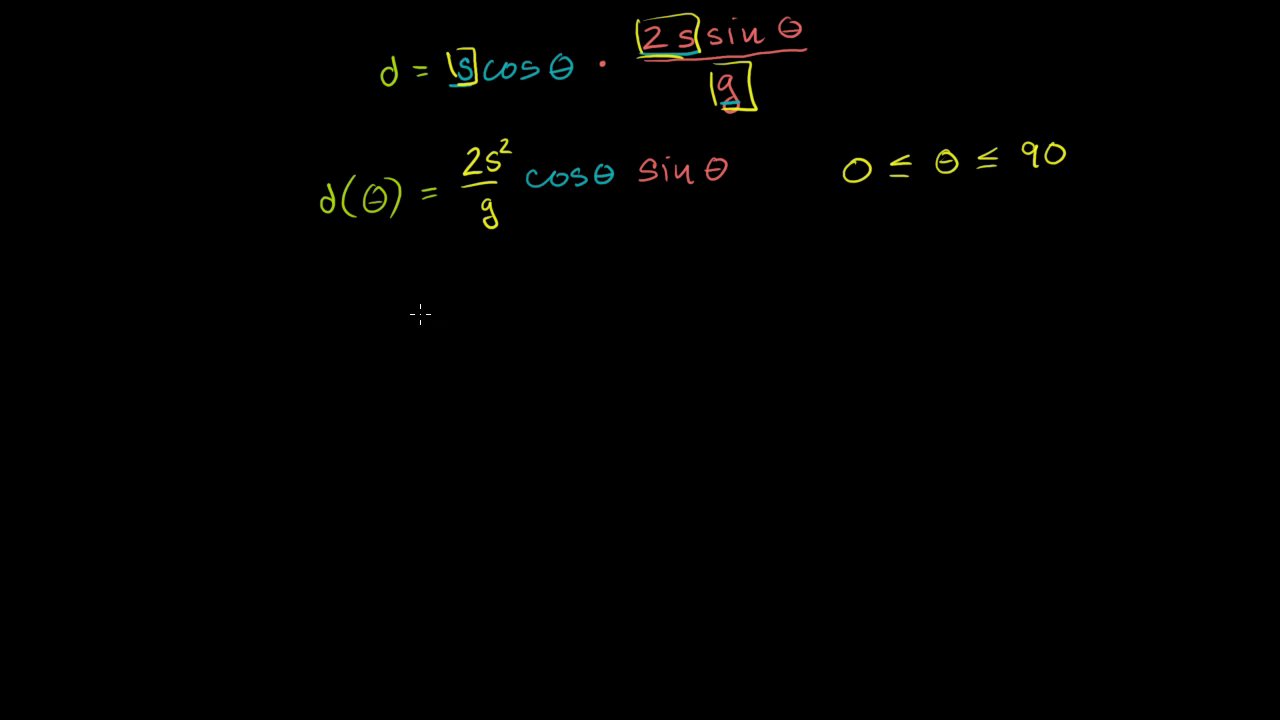 d = s cosθ · 2s sinθ / g
d(θ) = 2s²/g cosθ sinθ 0 ≤ θ ≤ 90